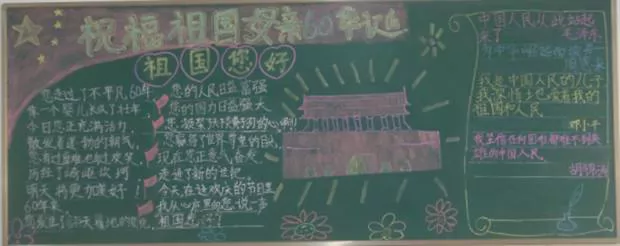 祝福祖国母亲60华诞
祖国您好
您走过了不平凡60年
像一个婴儿长成了壮年
今日您正充满活力
散发着蓬勃的朝气
您有过
历经了崎岖坎坷
明天将更加美好!!
60年来
您发生了天翻地的变化
您的人民日益富强
您的国力日益强大
您
您赢得了世界
现在您正意气奋发
走进了新的世纪
今天在这欢庆的节日里
我从心底里向您说一声
祖国您好
中国人民从此站起
来了 毛泽东
周恩来
我是中国人民的儿子
我深情地爱着我的
祖国和人民
邓小平
任何困难都难不倒英
雄的中国人民
胡锦涛